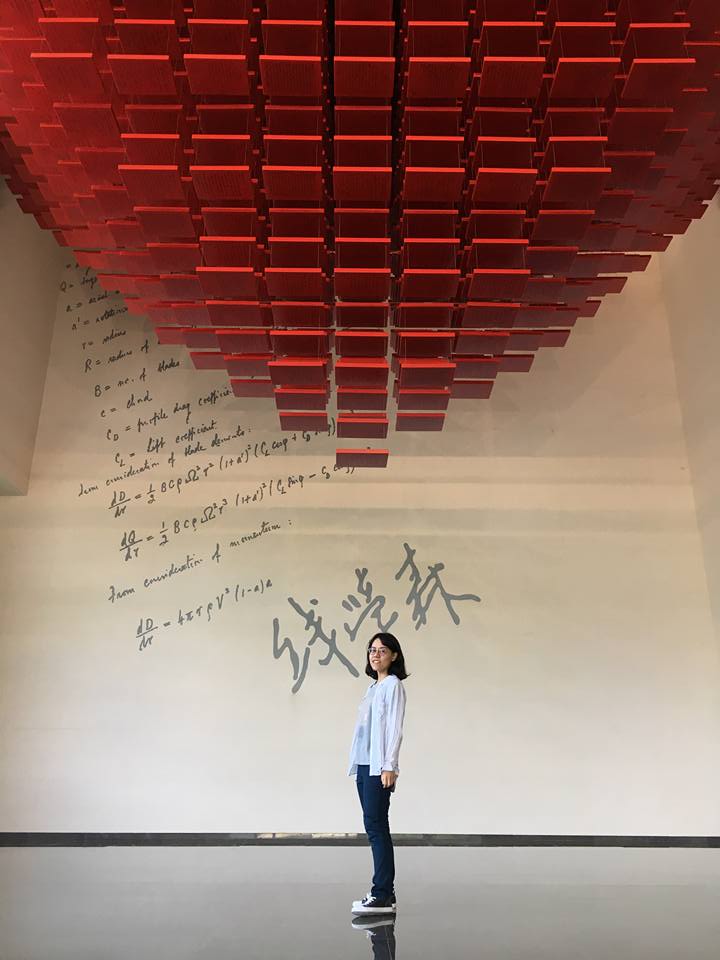 Q =
a = axial
a' =
r = radius
R = radius of
B = no. of blades
c = chord
C_D = profile drag
C_L = lift coefficient
From consideration of blade elements:
dD/dr = 1/2 B c ρ Ω² r² (1+a')² (C_L cos φ + C_D
dQ/dr = 1/2 B c ρ Ω² r³ (1+a')² (C_L sin φ − C_D
From consideration of momentum:
dD/dr = 4πrρV² (1-a)a
钱学森